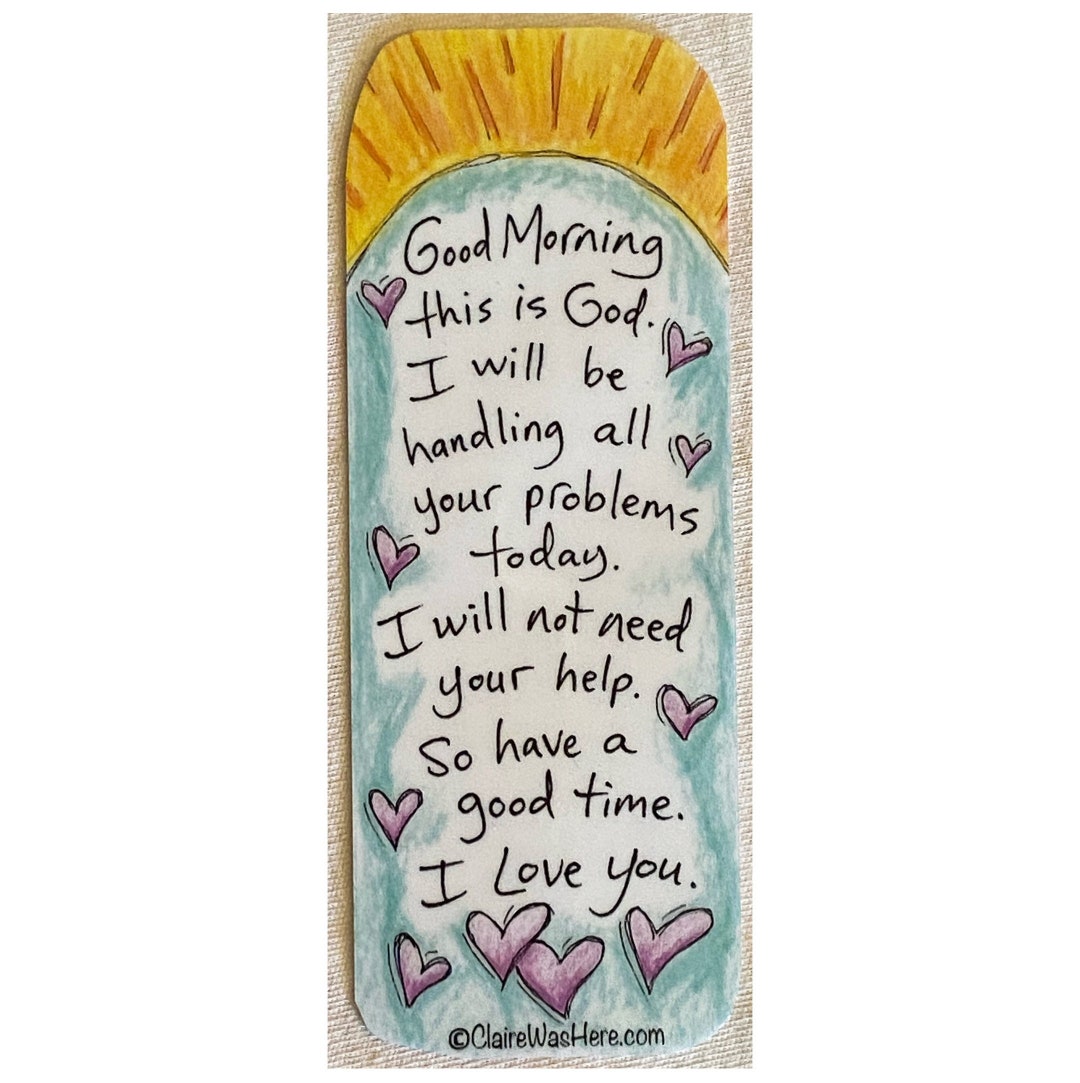 Good Morning
this is God.
I will be
handling all
your problems
today.
I will not need
your help.
So have a
good time.
I Love you.
©ClaireWasHere.com